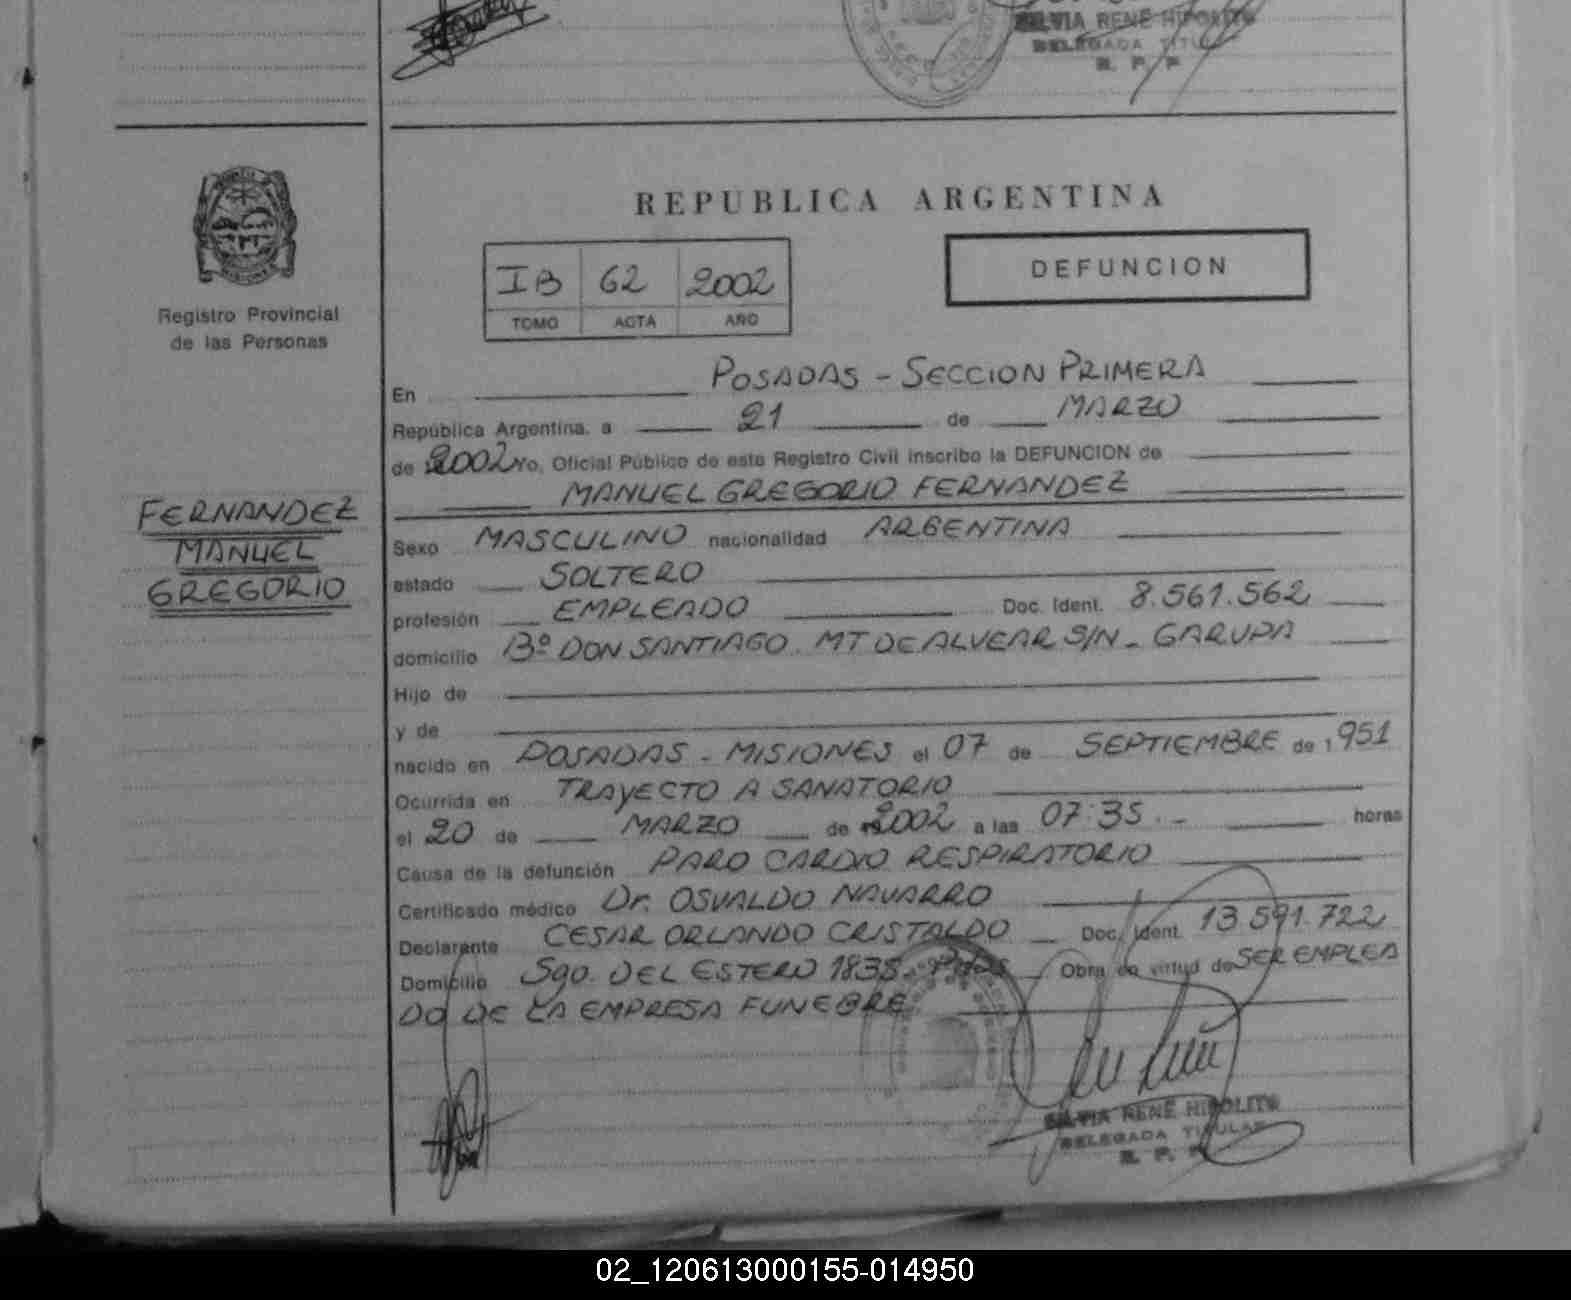 SILVIA RENÉ HIPOLITO
DELEGADA TITULAR
R. P. P.
REPUBLICA ARGENTINA
IB 62 2002
TOMO ACTA AÑO
DEFUNCION
Registro Provincial
de las Personas
En POSADAS - SECCION PRIMERA
República Argentina, a 21 de MARZO
de 2002 Yo, Oficial Público de este Registro Civil inscribo la DEFUNCION de
MANUEL GREGORIO FERNANDEZ
FERNANDEZ
MANUEL
GREGORIO
Sexo MASCULINO nacionalidad ARGENTINA
estado SOLTERO
profesión EMPLEADO Doc. Ident. 8.561.562
domicilio Bº DON SANTIAGO. MT DE ALVEAR S/N - GARUPA
Hijo de
y de
nacido en POSADAS - MISIONES el 07 de SEPTIEMBRE de 1.951
Ocurrida en TRAYECTO A SANATORIO
el 20 de MARZO de 2002 a las 07:35.- horas
Causa de la defunción PARO CARDIO RESPIRATORIO
Certificado médico Dr. OSVALDO NAVARRO
Declarante CESAR ORLANDO CRISTALDO Doc. Ident. 13.591.722
Domicilio Sgo. DEL ESTERO 1835 - Pdas Obra en virtud de SER EMPLEA
DO DE LA EMPRESA FUNEBRE
SILVIA RENÉ HIPOLITO
DELEGADA TITULAR
R. P. P.
02_120613000155-014950